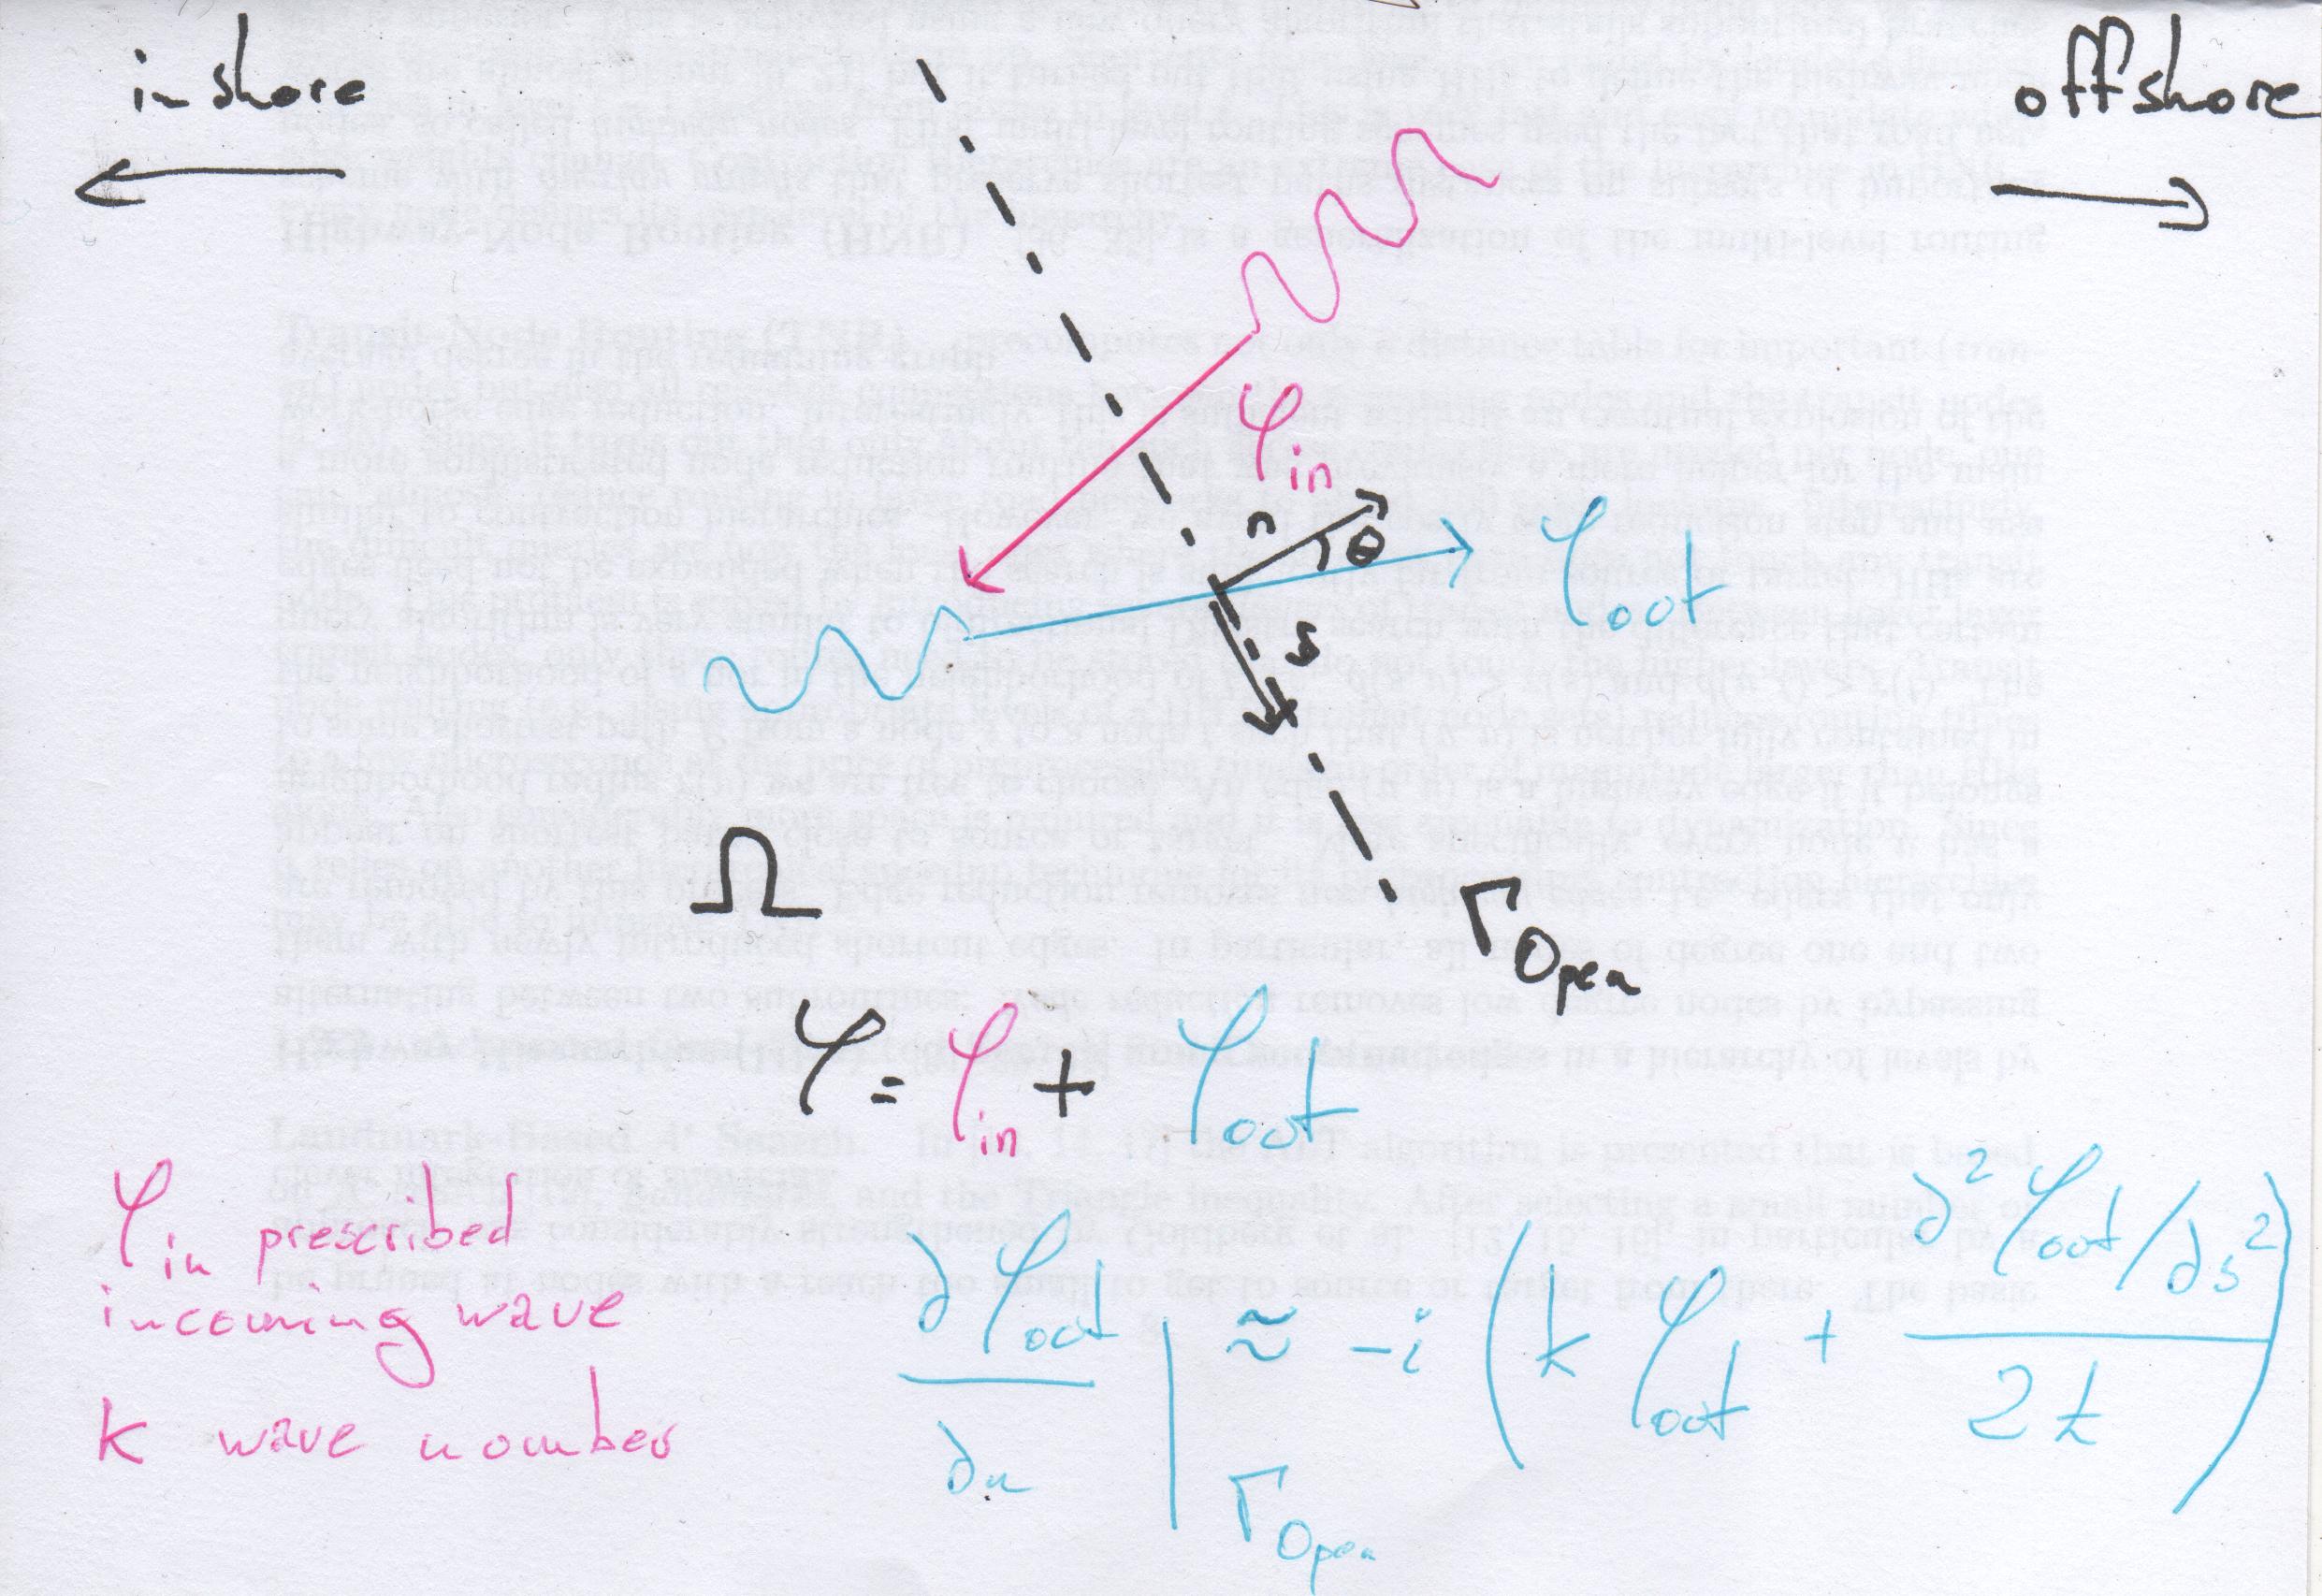 inshore
offshore
φin
n
θ
φout
s
Ω
ΓOpen
φ = φin + φout
φin prescribed
incoming wave
k wave number
∂φout/∂n |ΓOpen ≈ -i (k φout + ∂²φout/∂s² / 2k)